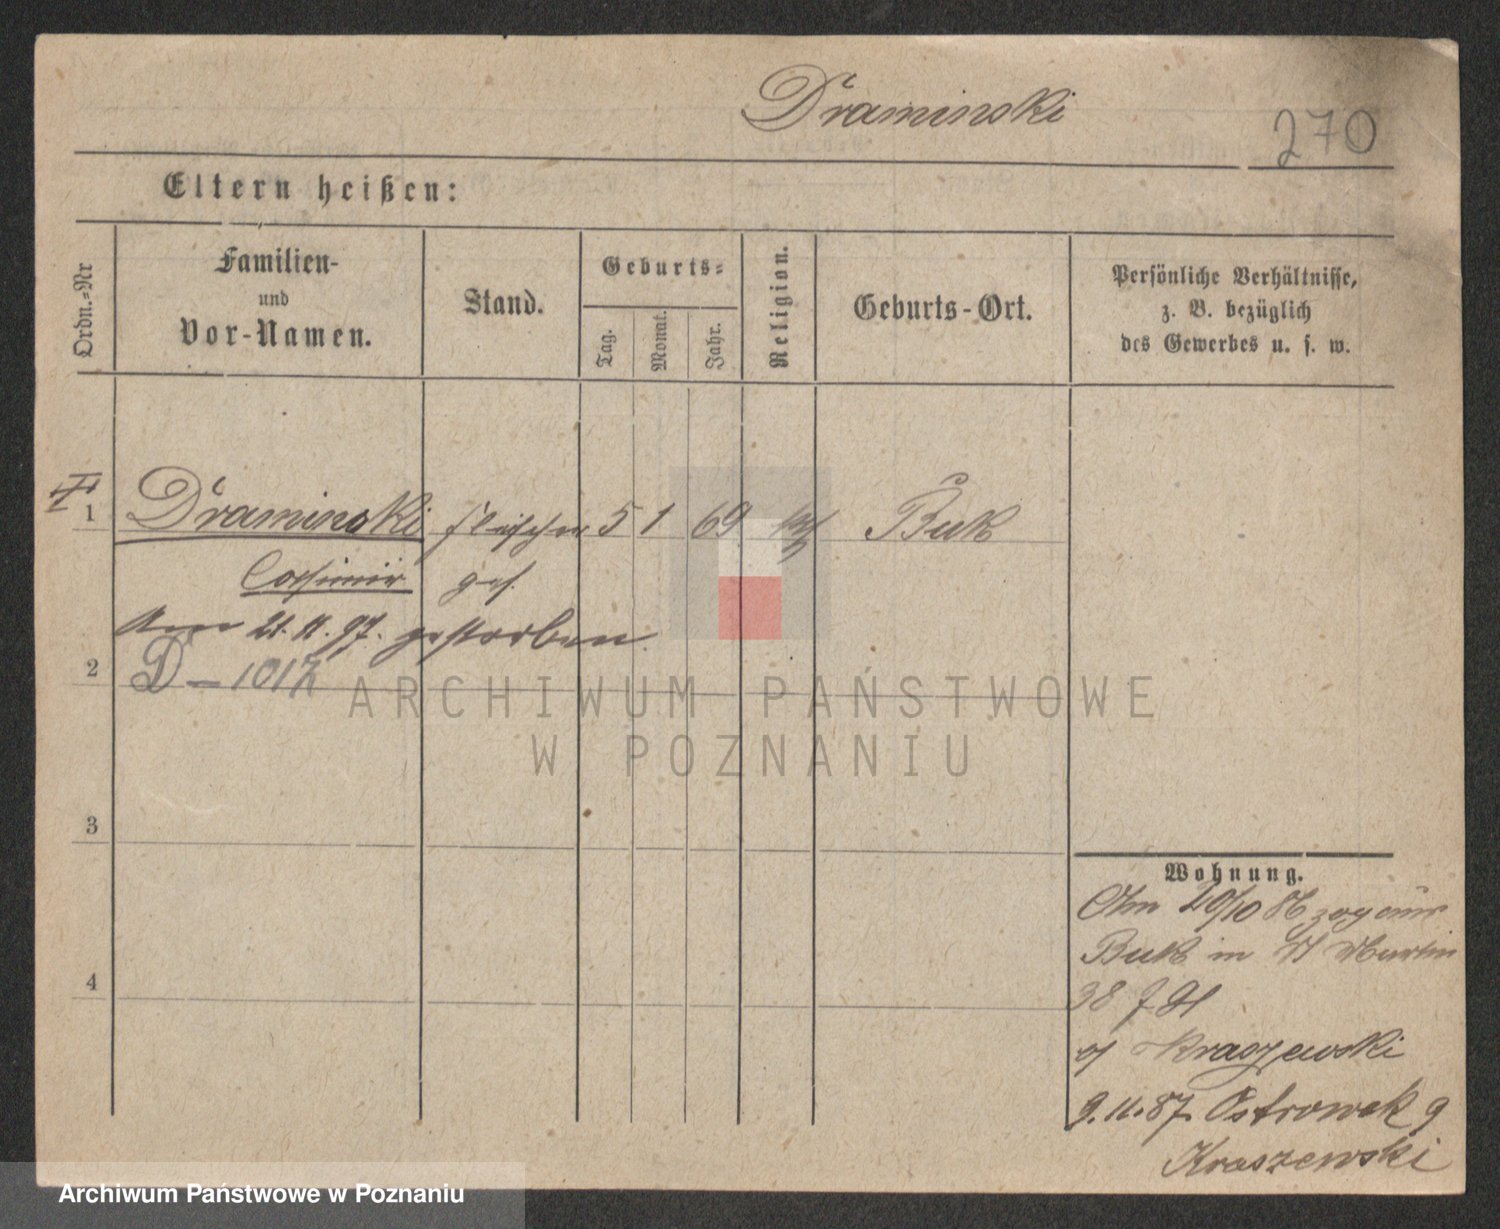 Draminski
270
Eltern heißen:
Ordn.-Nr
Familien-
und
Vor-Namen.
Stand.
Geburts-
Tag.
Monat.
Jahr.
Religion.
Geburts-Ort.
Persönliche Verhältnisse,
z. B. bezüglich
des Gewerbes u. s. w.
1 Draminski Fleischer 5 1 69 kth Buk
Casimir ges.
Am 21. 11. 97. gestorben.
D - 1012
2
ARCHIWUM PAŃSTWOWE
W POZNANIU
3
4
Wohnung.
20/10 86 zog aus
Buk in St Martin
38
Kraszewski
9. 11. 87. Ostrowek 9
Kraszewski
Archiwum Państwowe w Poznaniu